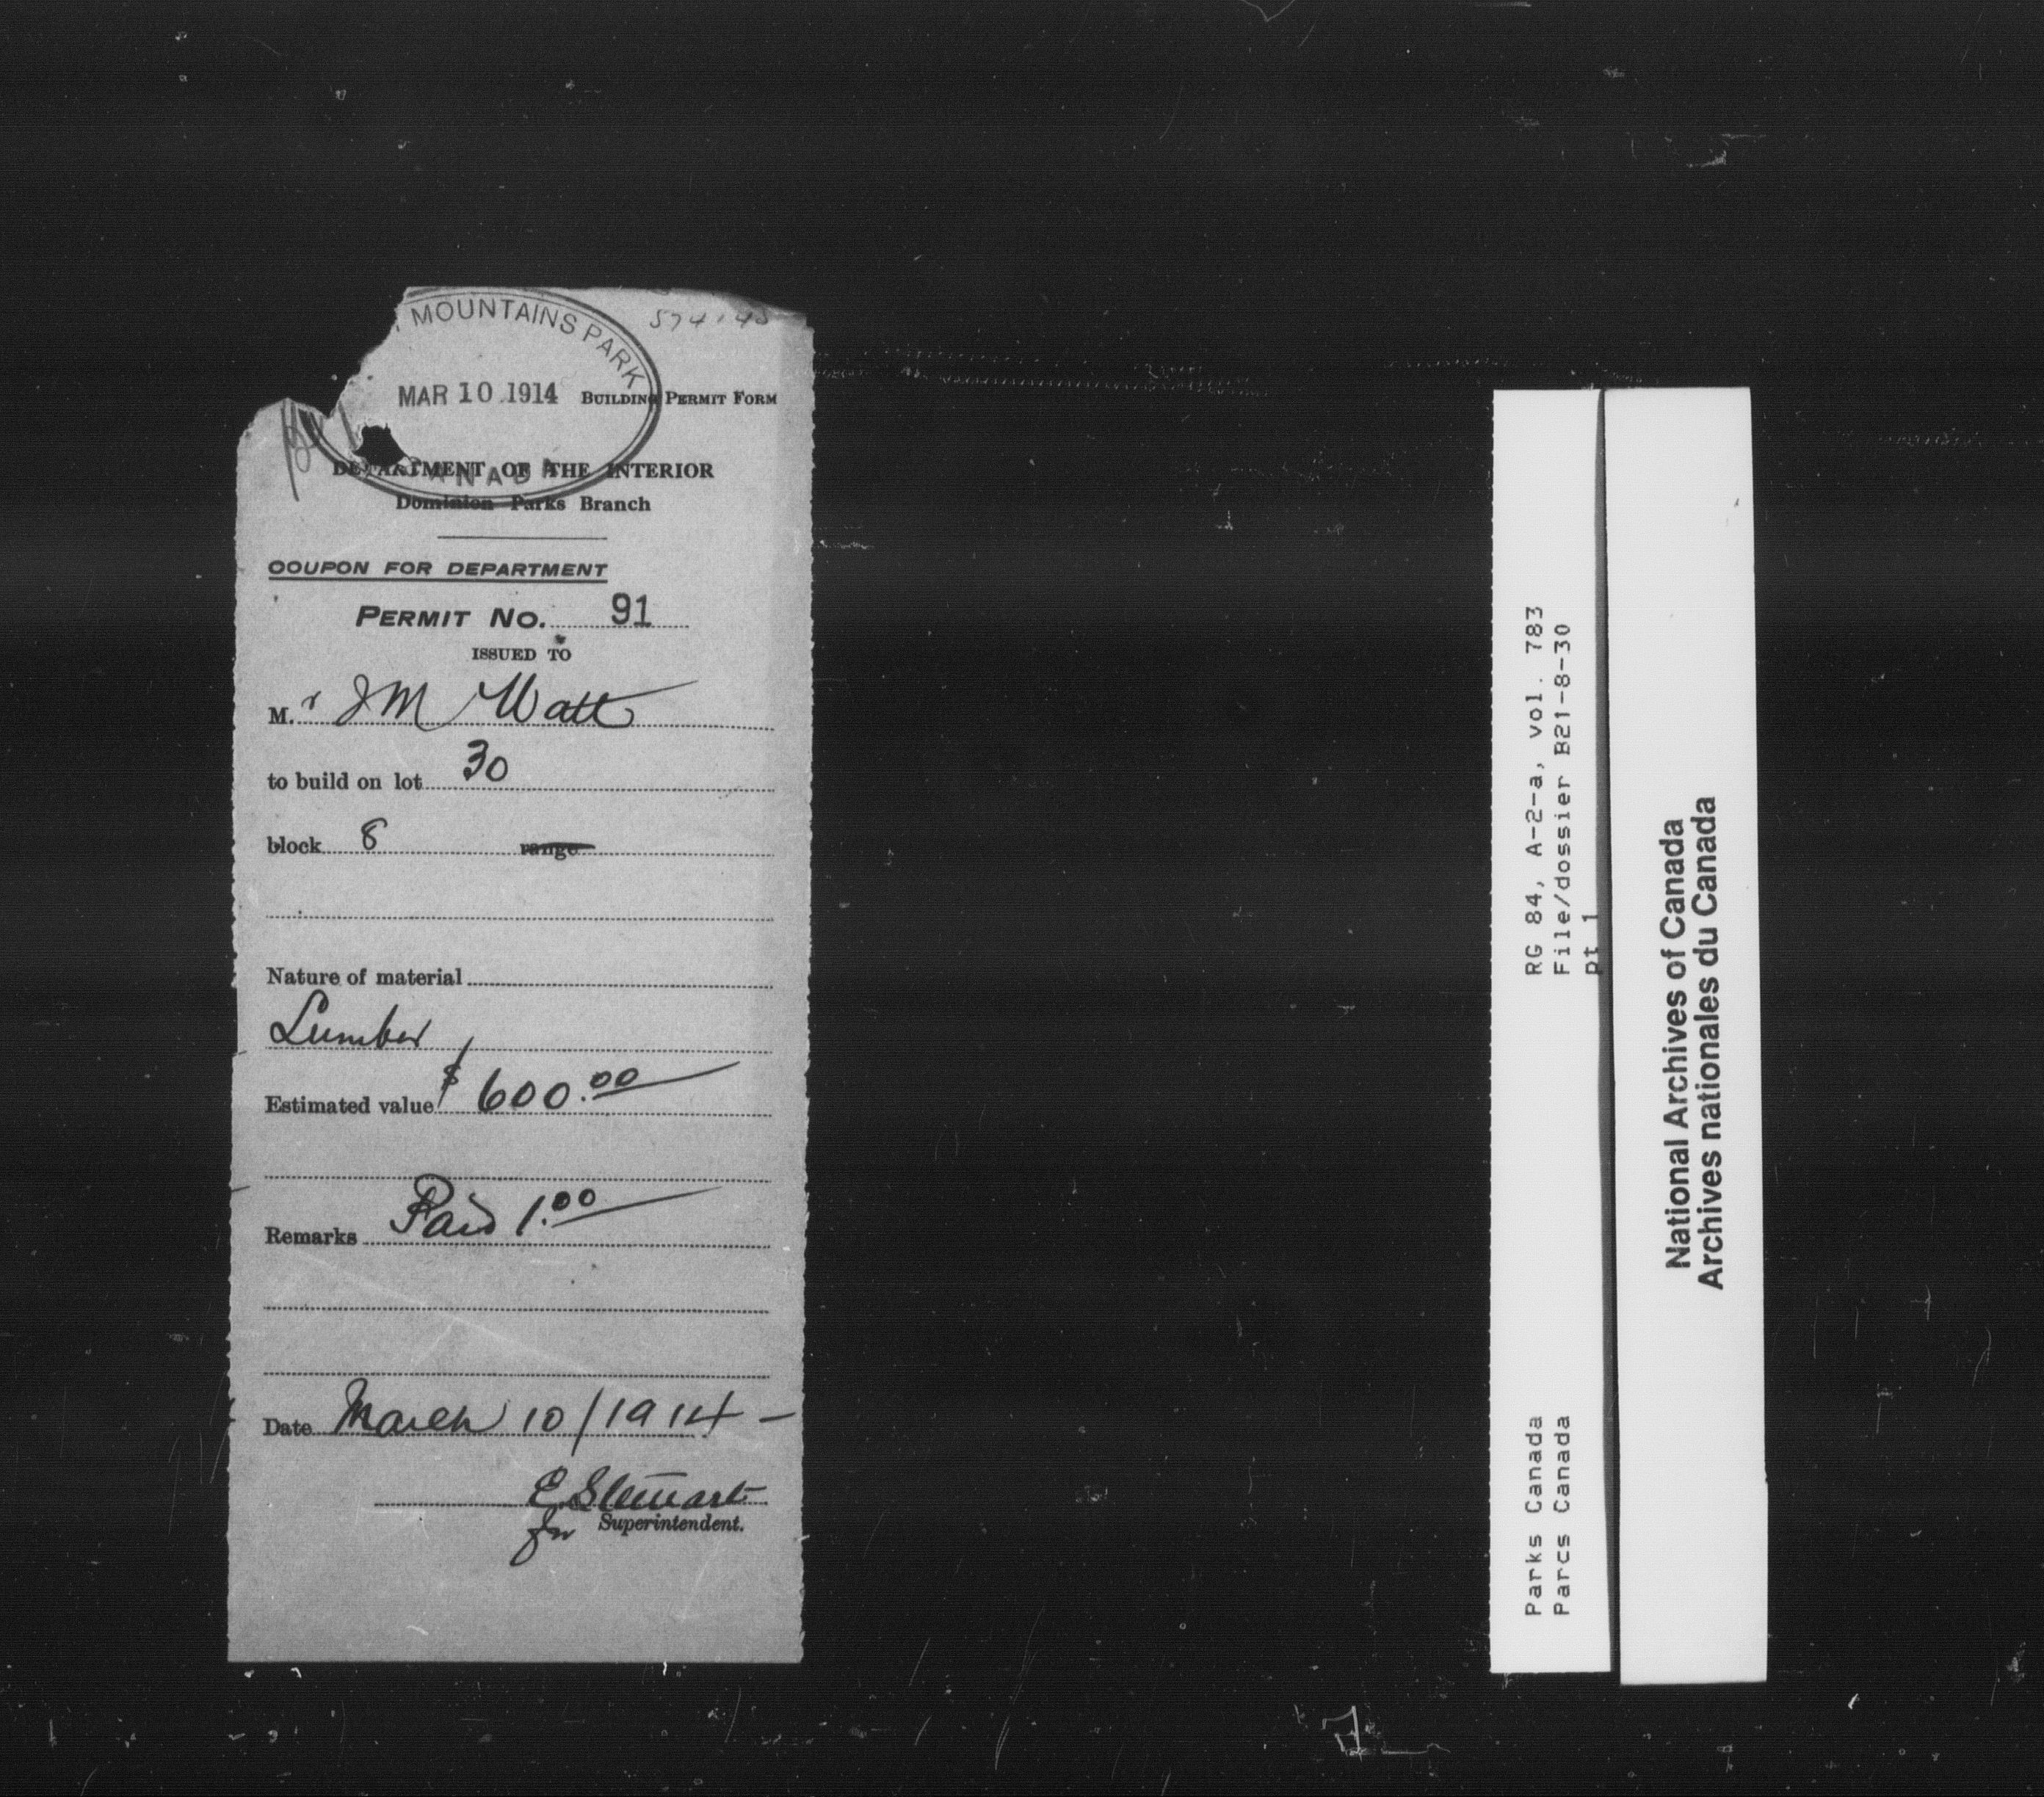 MOUNTAINS PARK
MAR 10 1914
BUILDING PERMIT FORM
CANADA
DEPARTMENT OF THE INTERIOR
Dominion Parks Branch
COUPON FOR DEPARTMENT
PERMIT NO. 91
ISSUED TO
M.r J M Watt
to build on lot 30
block 8 range
Nature of material
Lumber
Estimated value $600.00
Remarks Paid 1.00
Date March 10/1914 -
E. Stewart
for Superintendent.
RG 84, A-2-a, vol. 783
File/dossier B21-8-30
pt 1
Parks Canada
Parcs Canada
National Archives of Canada
Archives nationales du Canada